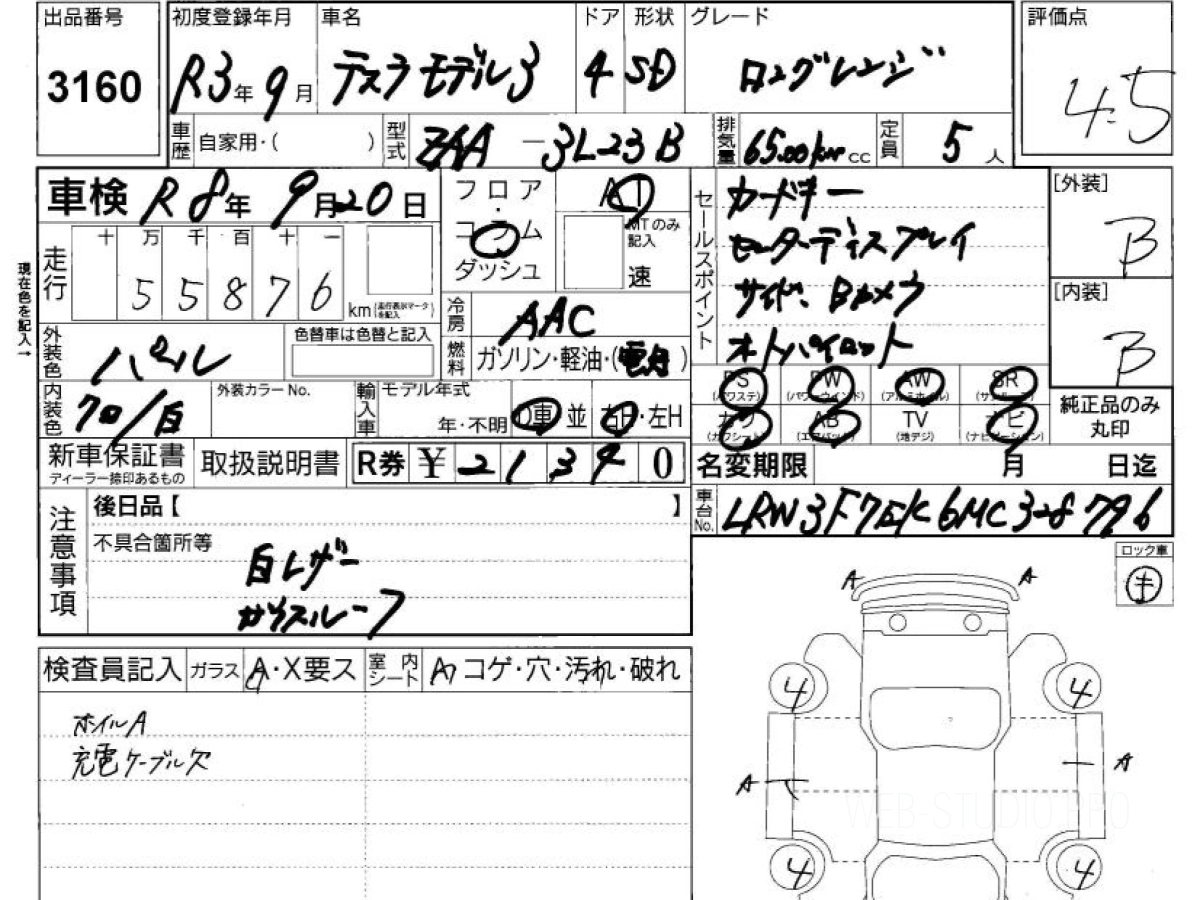 出品番号
3160
初度登録年月
R3年9月
車名
テスラ モデル3
ドア
4
形状
SD
グレード
ロングレンジ
評価点
4.5
車歴
自家用・( )
型式
ZAA-3L23B
排気量
cc
定員
5人
車検 R8年 9月20日
フロア
・
コラム
ダッシュ
AT
MTのみ記入
速
セールスポイント
カードキー
センターディスプレイ
サイド、Bカメラ
オートパイロット
[外装]
B
[内装]
B
現在色を記入→
走行
十 万 千 百 十 一
5 5 8 7 6
km (走行表示マークを記入)
冷房
AAC
外装色
パール
色替車は色替と記入
燃料
ガソリン・軽油・(電気)
PS
(パワステ)
PW
(パワーウインド)
AW
(アルミホイル)
SR
(サンルーフ)
カワ
(カワシート)
AB
(エアバッグ)
TV
(地デジ)
ナビ
(ナビゲーション)
純正品のみ
丸印
内装色
クロ/白
外装カラーNo.
輸入車
モデル年式
年・不明
D車 並
右H・左H
新車保証書
ディーラー捺印あるもの
取扱説明書
R券 ¥ 2 1 3 9 0
名変期限
月 日迄
車台No.
LRW3F7EK6MC328796
注意事項
後日品【 】
不具合箇所等
白レザー
ガラスルーフ
ロック車
キ
検査員記入
ガラス
A・X要ス
室内シート
コゲ・穴・汚れ・破れ
ホイルA
充電ケーブル欠
A A
4 4
A
A
4 4
WEB-STUDIO.PRO